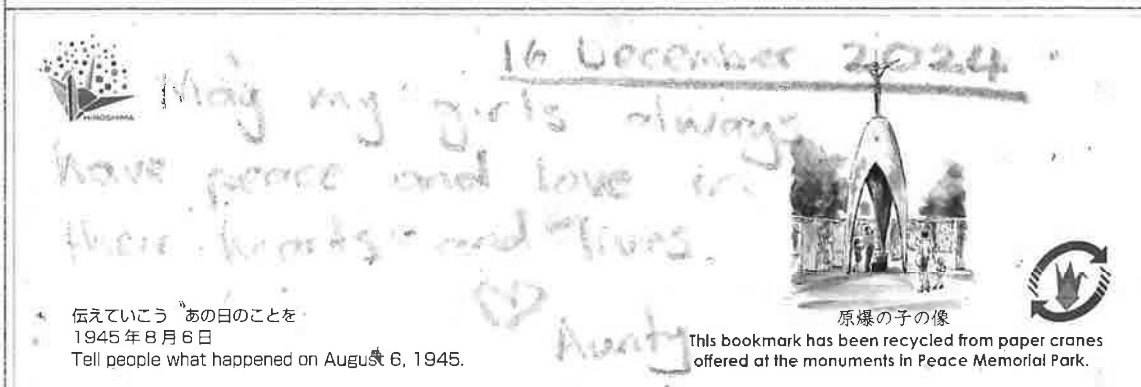 16 December 2024
HIROSHIMA
May my girls always
have peace and love in
their hearts and lives.
Aunty
伝えていこう あの日のことを
1945年8月6日
Tell people what happened on August 6, 1945.
原爆の子の像
This bookmark has been recycled from paper cranes
offered at the monuments in Peace Memorial Park.